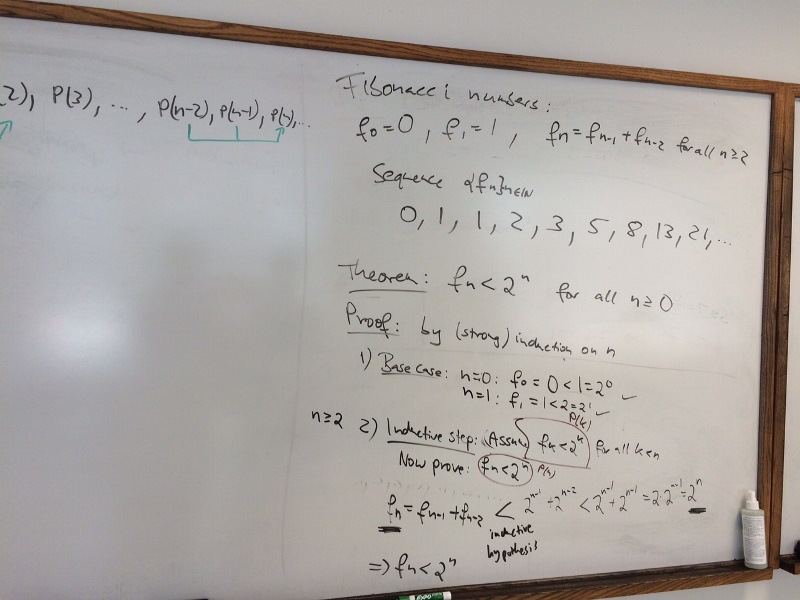 2), P(3), ..., P(n-2), P(n-1), P(n),...
Fibonacci numbers:
f₀=0, f₁=1, fₙ=fₙ₋₁+fₙ₋₂ for all n≥2
Sequence {fₙ}ₙ∈ℕ
0, 1, 1, 2, 3, 5, 8, 13, 21,...
Theorem: fₙ<2ⁿ for all n≥0
Proof: by (strong) induction on n
1) Base case: n=0: f₀=0<1=2⁰ ✓
n=1: f₁=1<2=2¹ ✓
P(k)
n≥2 2) Inductive step: Assume fₖ<2ᵏ for all k<n
Now prove: fₙ<2ⁿ P(n)
fₙ=fₙ₋₁+fₙ₋₂ < 2ⁿ⁻¹+2ⁿ⁻² < 2ⁿ⁻¹+2ⁿ⁻¹=2·2ⁿ⁻¹=2ⁿ
inductive
hypothesis
⇒ fₙ<2ⁿ
EXPO